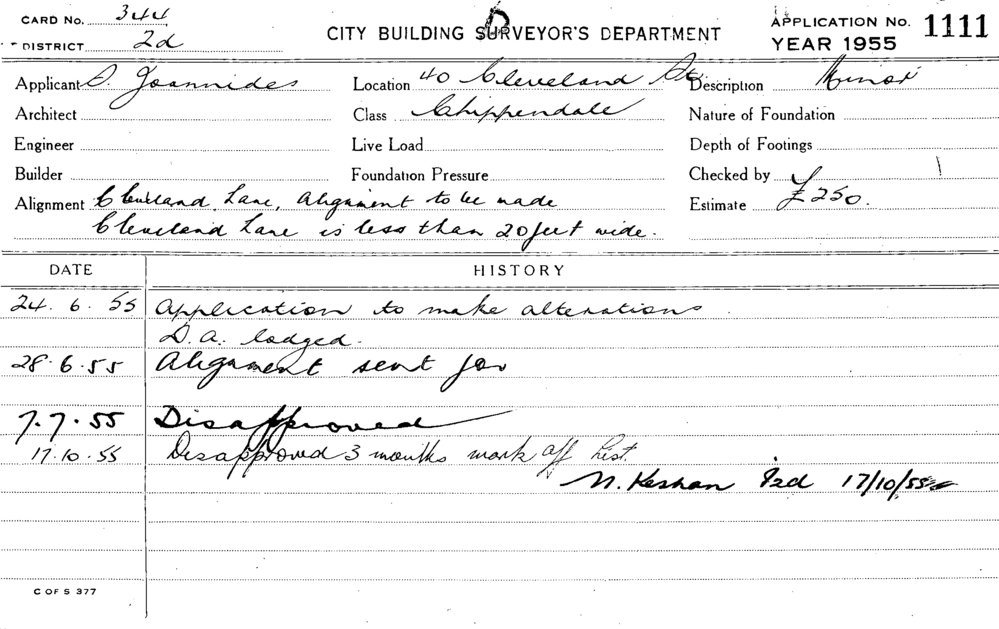 CARD No. 344
DISTRICT 2d
CITY BUILDING SURVEYOR'S DEPARTMENT
D
APPLICATION No. 1111
YEAR 1955
Applicant Joannides Location 40 Cleveland St Description Minor
Architect Class Chippendale Nature of Foundation
Engineer Live Load Depth of Footings
Builder Foundation Pressure Checked by
Alignment Cleveland Lane, Alignment to be made Estimate £250.
Cleveland Lane is less than 20 feet wide.
DATE HISTORY
24.6.55 Application to make alterations
D.A. lodged.
28.6.55 Alignment sent for
7.7.55 Disapproved
17.10.55 Disapproved 3 months mark off list.
N. Keshan 17/10/55
C OF S 377